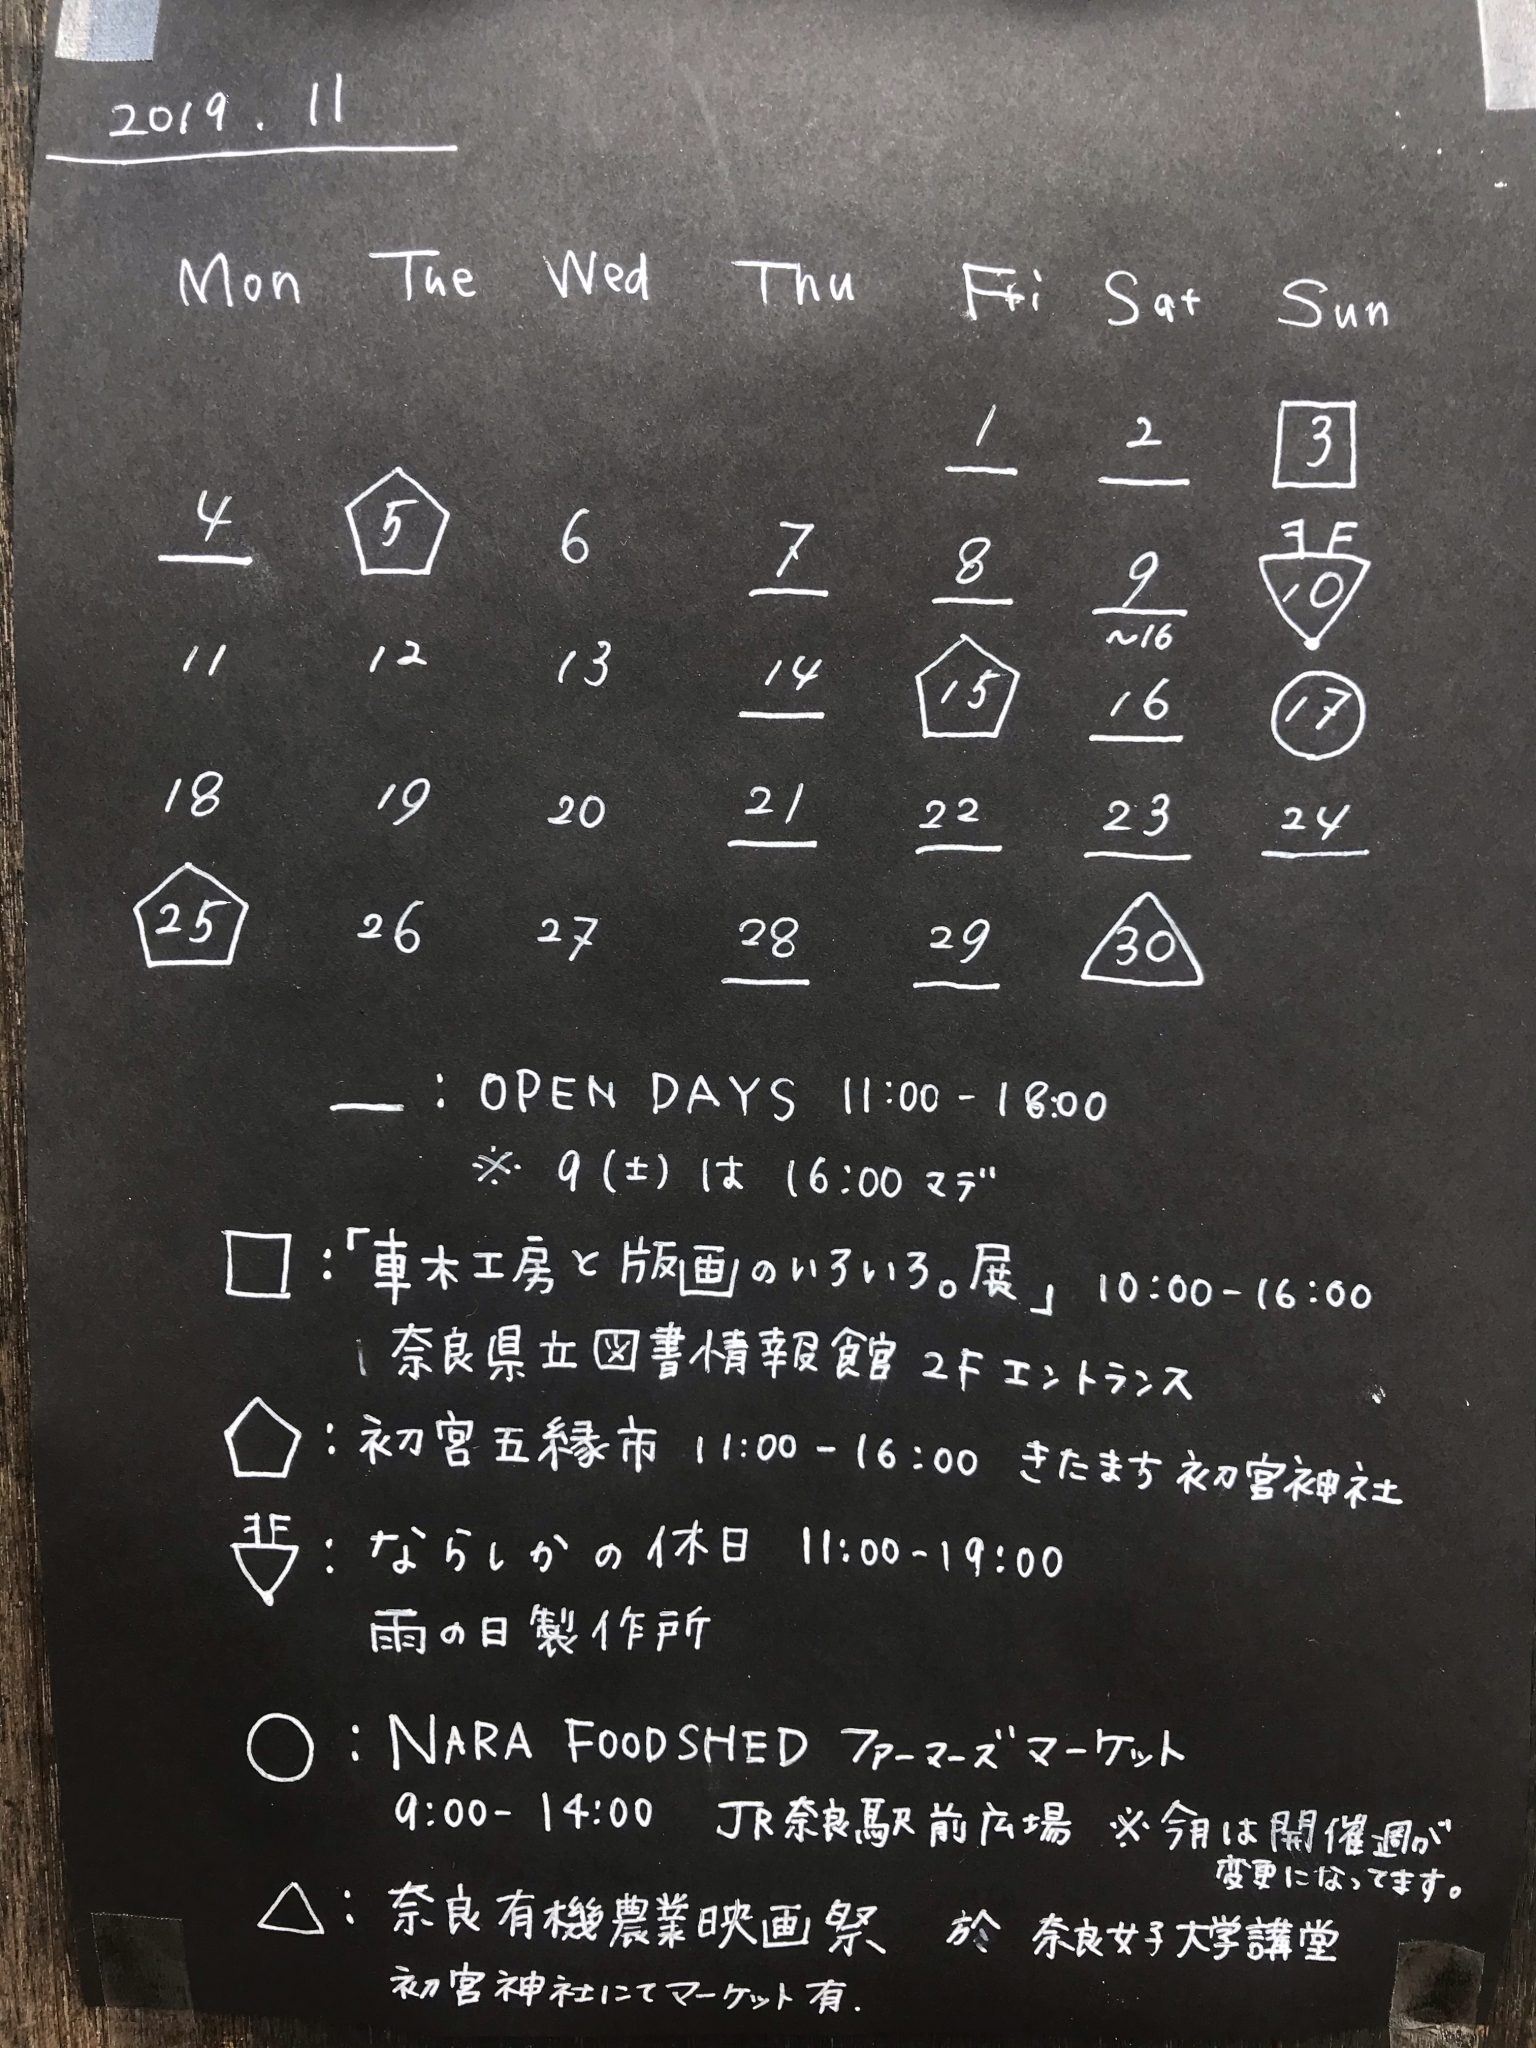 2019.11
Mon Tue Wed Thu Fri Sat Sun
1 2 3
4 5 6 7 8 9 10
~16
11 12 13 14 15 16 17
18 19 20 21 22 23 24
25 26 27 28 29 30
: OPEN DAYS 11:00-18:00
※ 9(土)は 16:00マデ
:「車木工房と版画のいろいろ。展」 10:00-16:00
奈良県立図書情報館 2F エントランス
: 初宮五縁市 11:00-16:00 きたまち初宮神社
: ならしかの休日 11:00-19:00
雨の日製作所
: NARA FOODSHED ファーマーズマーケット
9:00-14:00 JR奈良駅前広場 ※今月は開催週が
変更になってます。
: 奈良有機農業映画祭 於 奈良女子大学講堂
初宮神社にてマーケット有.